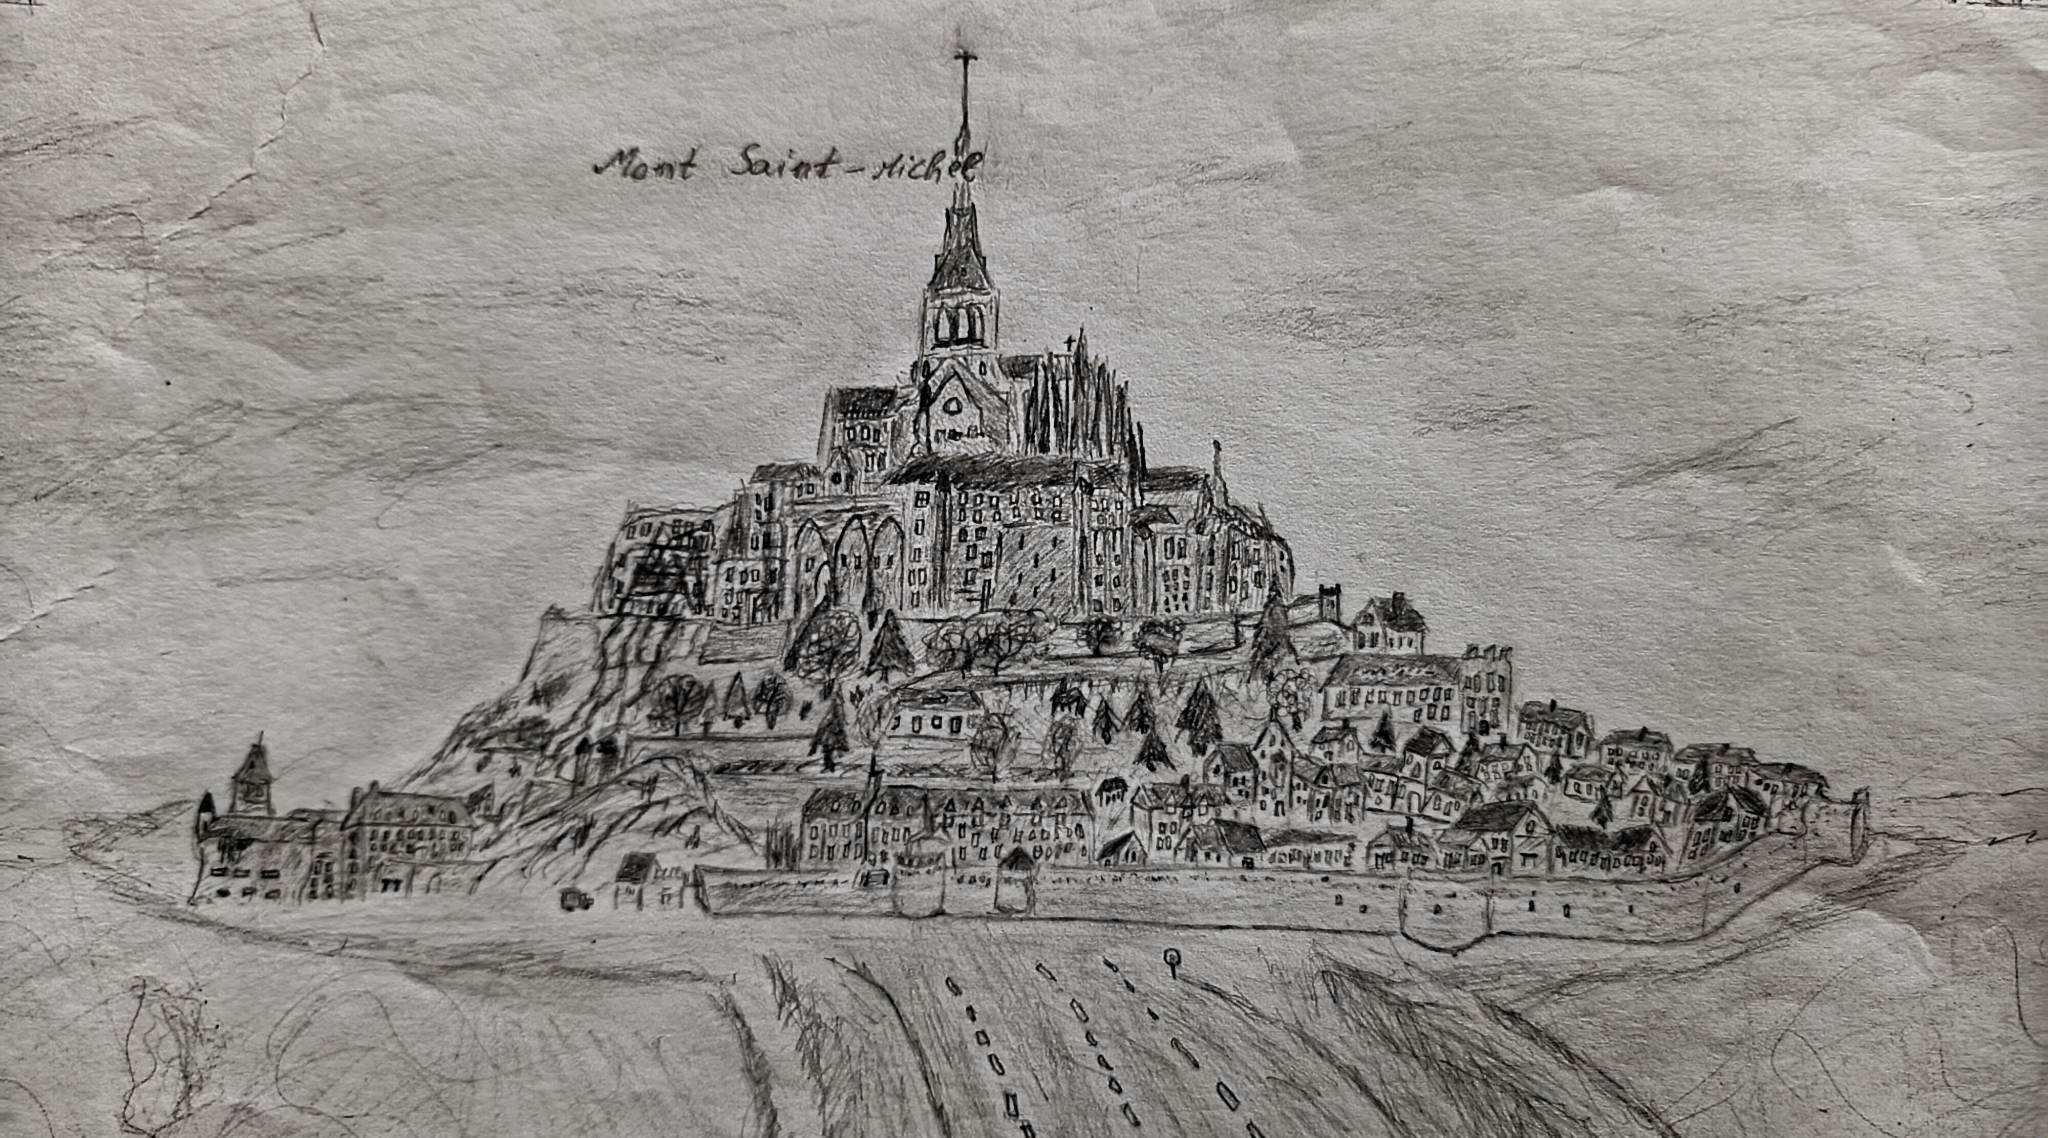 Mont Saint-Michel